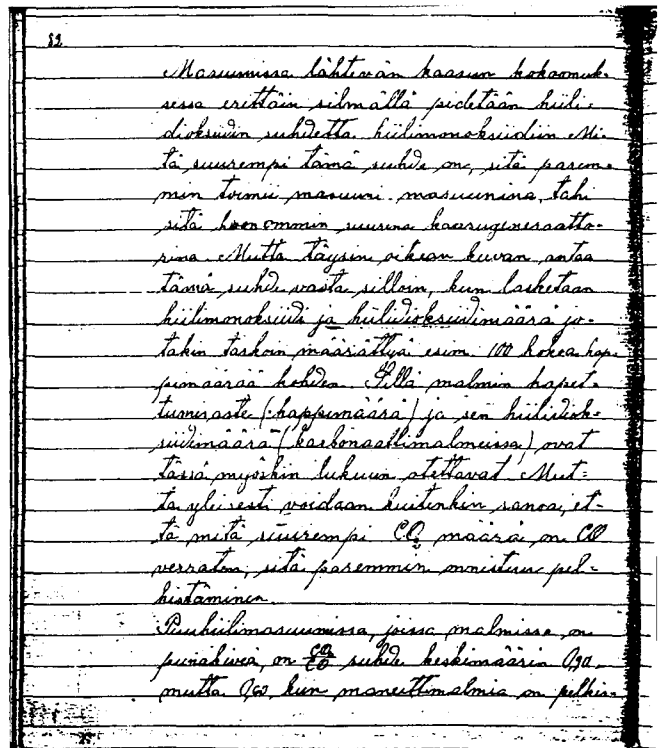 52
Masuunissa lähtevän kaasun kokoomuk-
sessa erittäin silmällä pidetään hiili-
dioksiidin suhdetta hiilimonoksiidiin Mi-
tä suurempi tämä suhde on, sitä parem-
min toimii masuuni masuunina, tahi
sitä huonommin suurena kaasugeneraatto-
rina. Mutta täysin oikean kuvan antaa
tämä suhde vasta silloin, kun lasketaan
hiilimonoksiidi ja hiilidioksiidimäärä jo-
takin tarkoin määrättyä esim 100 kokea hap-
pimäärää kohden. Sillä malmin hapet-
tumisaste (happimäärä) ja sen hiilidiok-
siidimäärä (karbonaattimalmeissa) ovat
tässä myöskin lukuun otettavat Mut-
ta yleisesti voidaan kuitenkin sanoa, et-
tä mitä suurempi CO₂ määrä on CO
verraten, sitä paremmin onnistuu pel-
kistäminen.
Puuhiilimasuunissa, joissa malmissa on
punakiveä, on CO₂/CO suhde keskimäärin 0,90
mutta 0,60 kun maneettimalmia on pelkis-